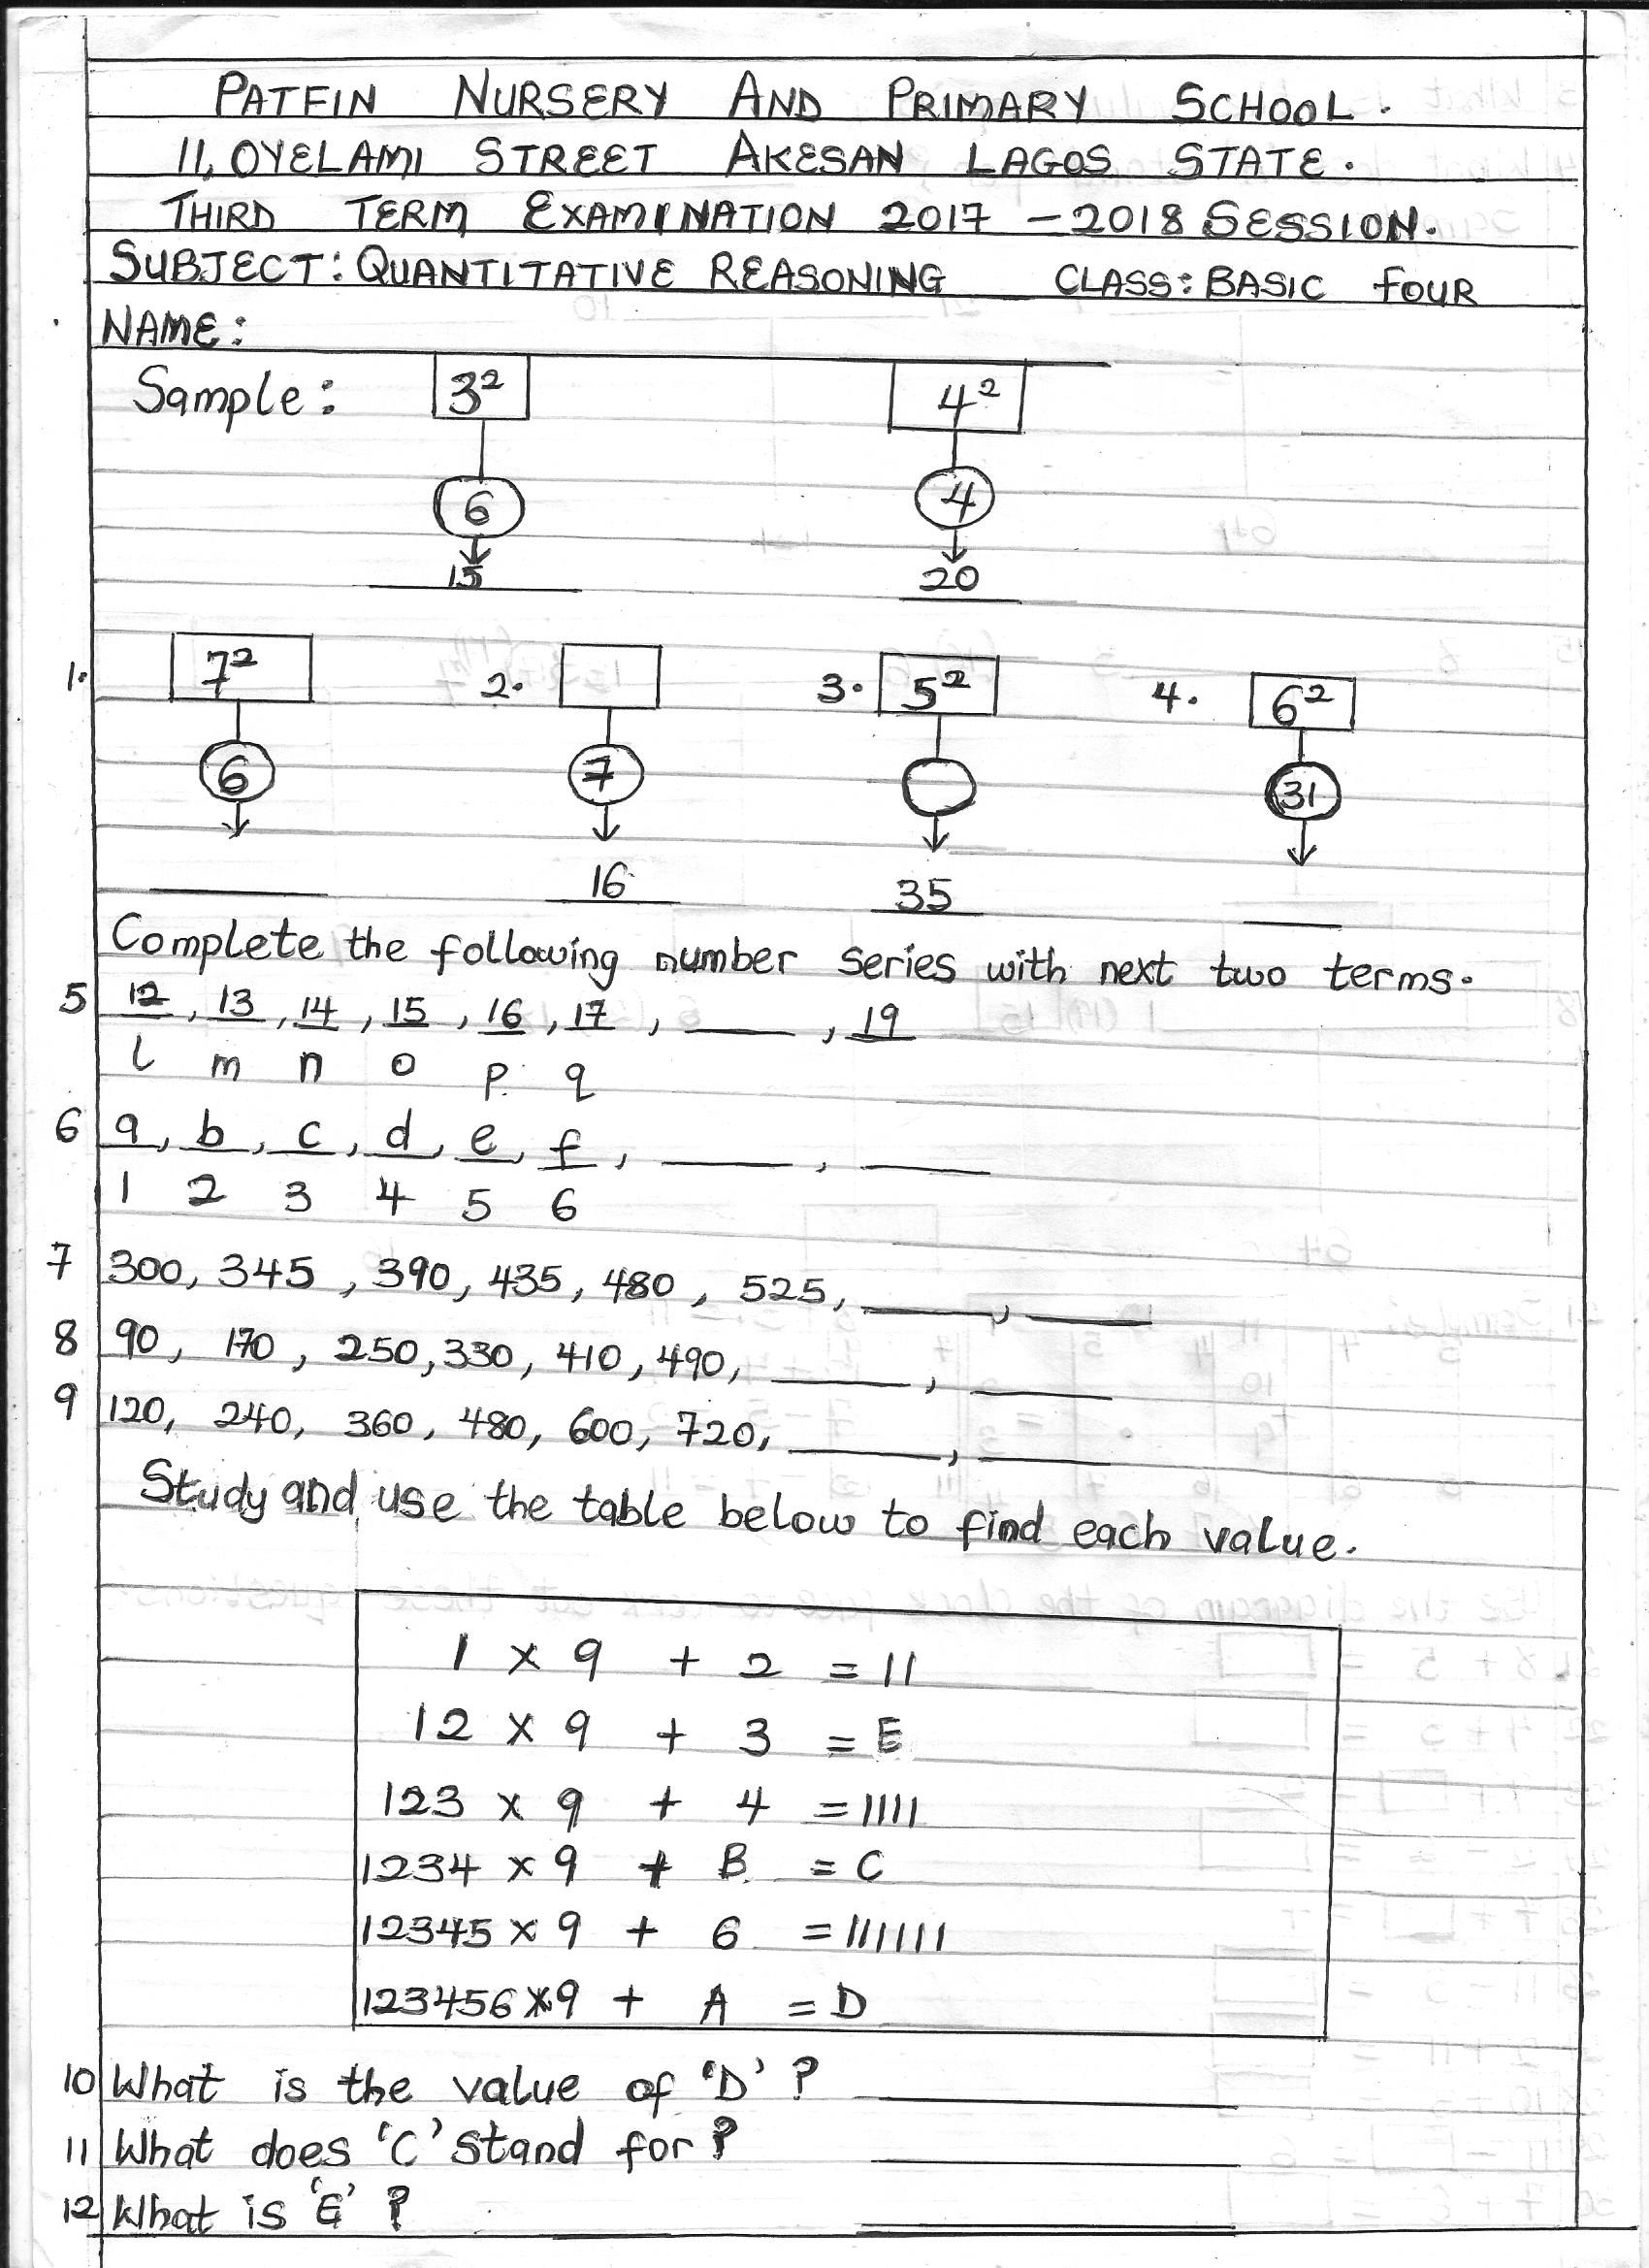 PATFIN NURSERY AND PRIMARY SCHOOL.
11, OYELAMI STREET AKESAN LAGOS STATE.
THIRD TERM EXAMINATION 2017 - 2018 SESSION.
SUBJECT: QUANTITATIVE REASONING CLASS: BASIC FOUR
NAME:
Sample: 3² 4²
6 4
15 20
1. 7² 2. 3. 5² 4. 6²
6 7 31
16 35
Complete the following number series with next two terms.
5 12, 13, 14, 15, 16, 17, ____, 19
l m n o p. q
6 a, b, c, d, e, f, ____, ____
1 2 3 4 5 6
7 300, 345, 390, 435, 480, 525, ____, ____
8 90, 170, 250, 330, 410, 490, ____, ____
9 120, 240, 360, 480, 600, 720, ____, ____
Study and use the table below to find each value.
1 × 9 + 2 = 11
12 × 9 + 3 = E
123 × 9 + 4 = 1111
1234 × 9 + B = C
12345 × 9 + 6 = 111111
123456 × 9 + A = D
10 What is the value of 'D' ? ____
11 What does 'C' stand for? ____
12 What is 'E' ? ____